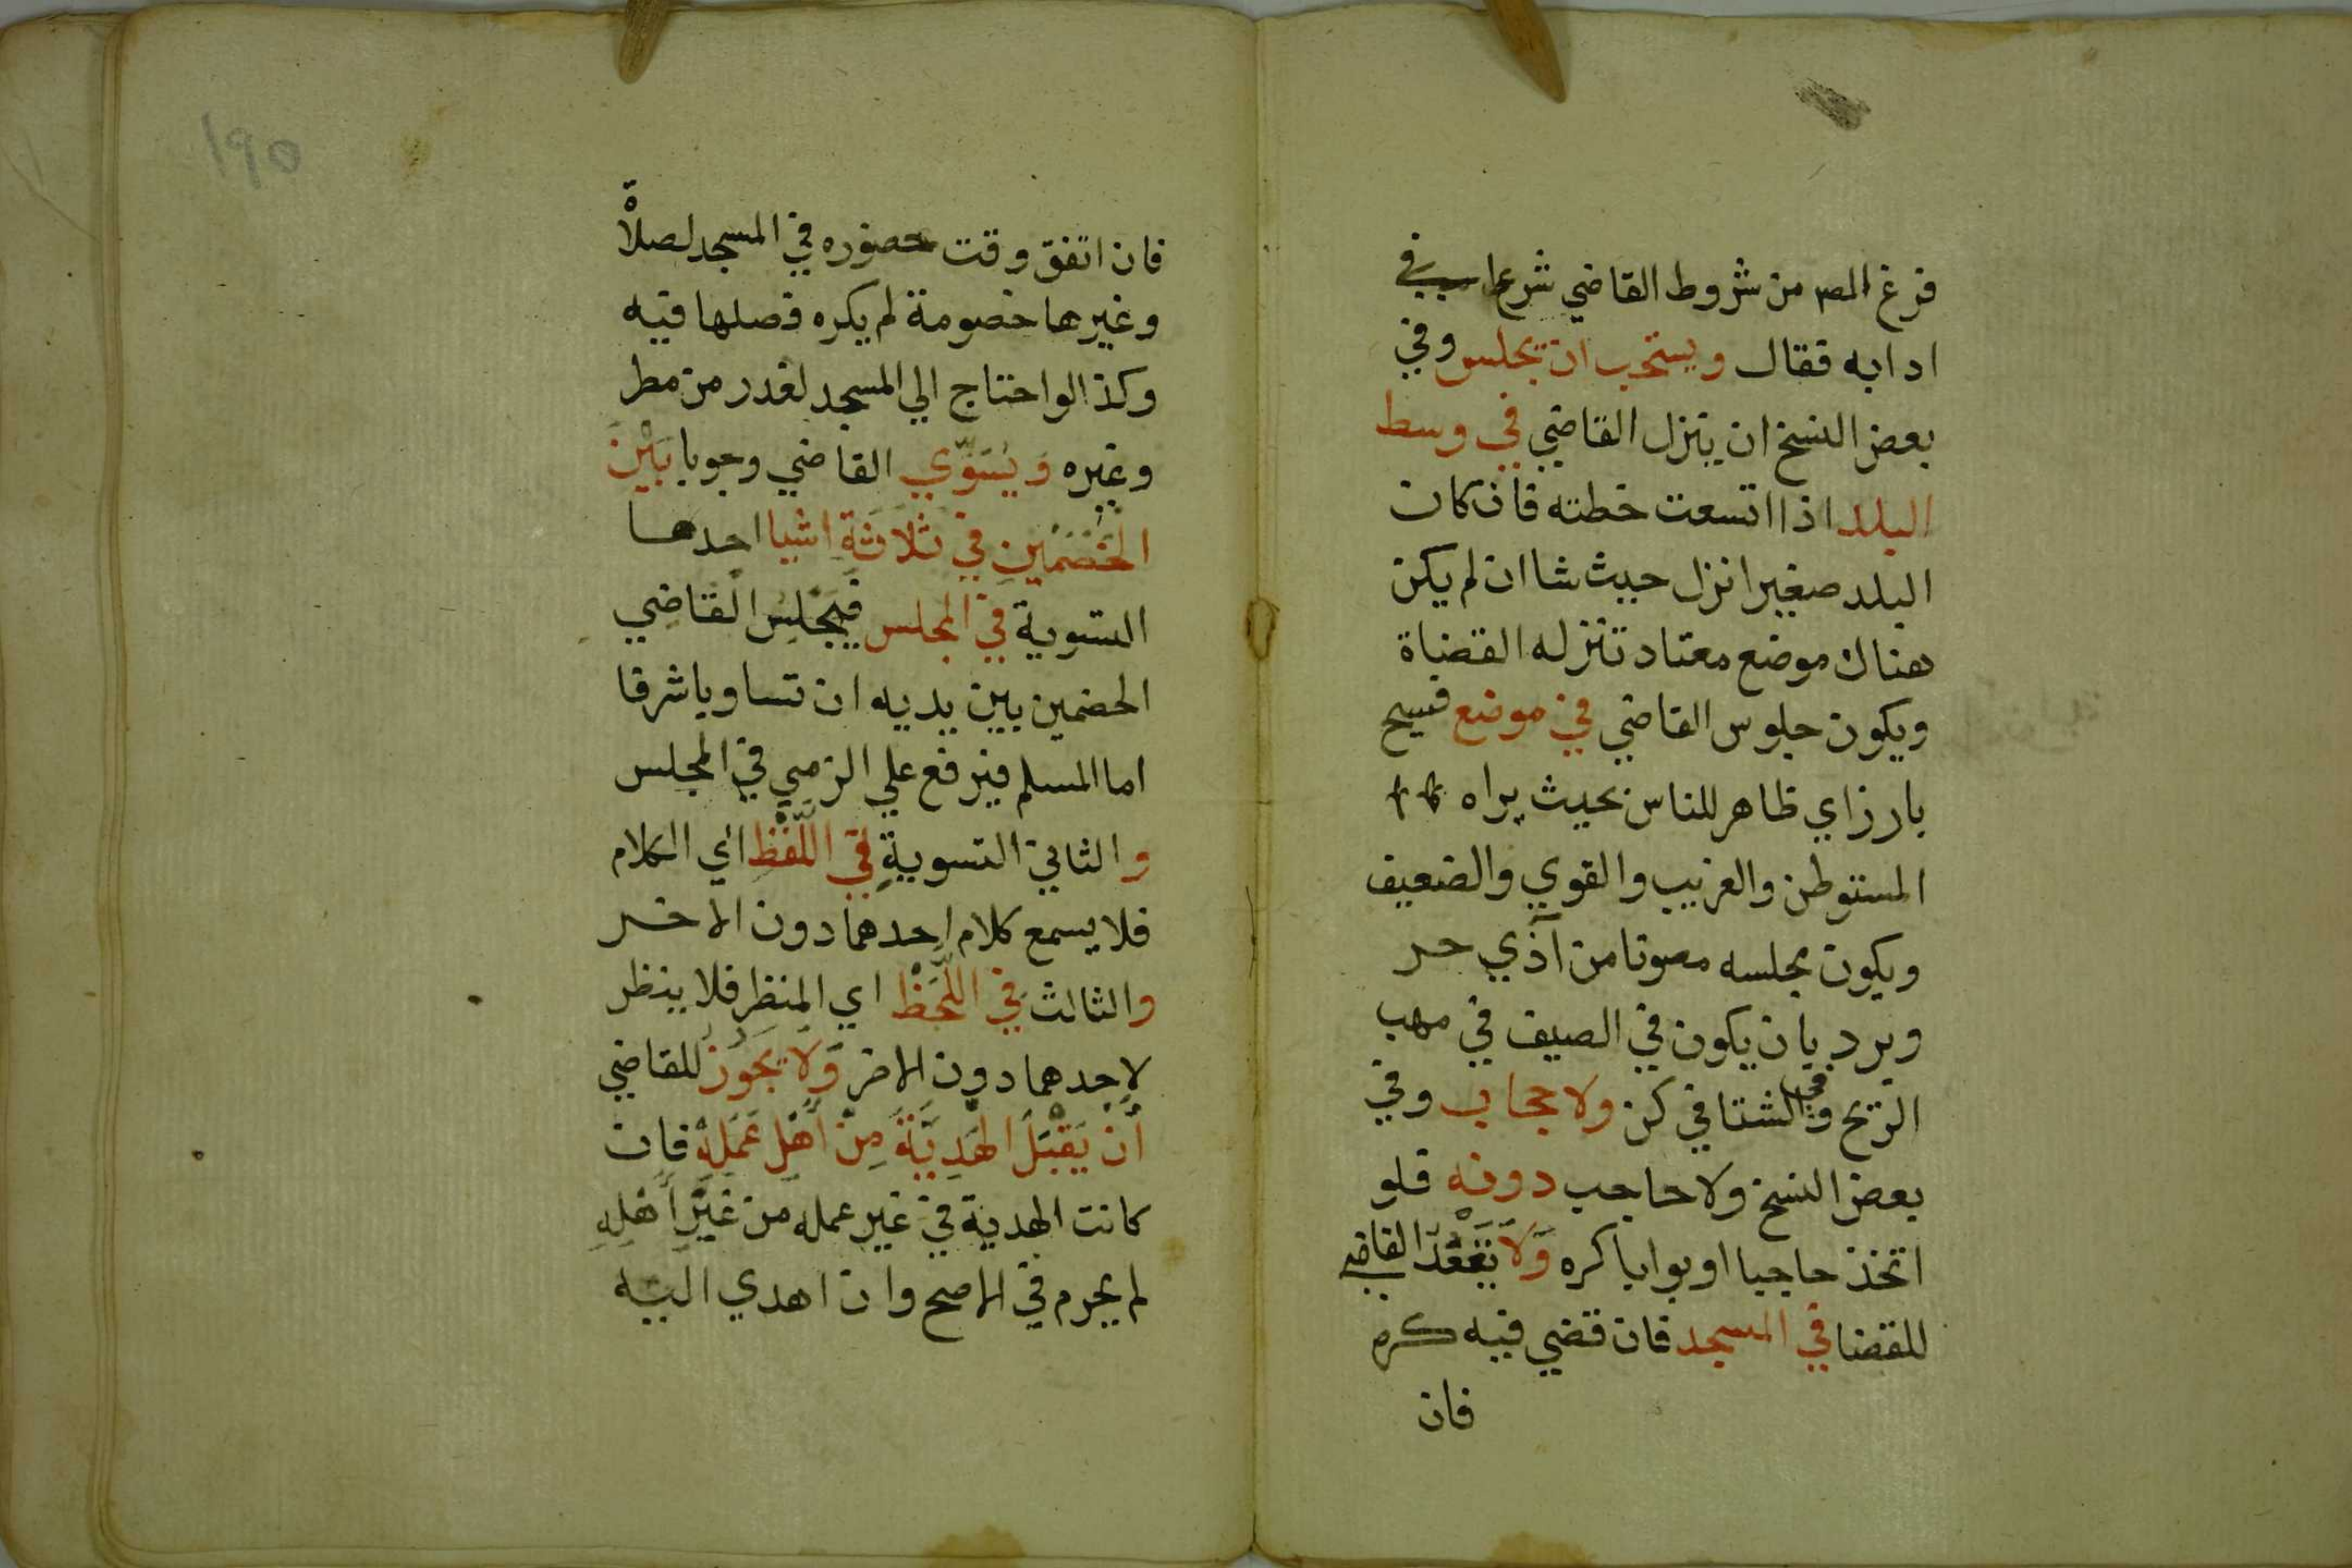 فرغ المص من شروط القاضي شرع في
ادابه فقال ويستحب ان يجلس وفي
بعض النسخ ان ينزل القاضي في وسط
البلد اذا اتسعت خطته فان كان
البلد صغيرا نزل حيث شا ان لم يكن
هناك موضع معتاد تنزله القضاة
ويكون جلوس القاضي في موضع فسيح
بارز اي ظاهر للناس بحيث يراه
المستوطن والغريب والقوي والضعيف
ويكون مجلسه مصونا من آذي حر
وبرد بان يكون في الصيف في مهب
الريح وفي الشتا في كن ولا حجاب وفي
بعض النسخ ولا حاجب دونه فلو
اتخذ حاجبا او بوابا كره وَلَا يَقْعُدُ القاضي
للقضا في المسجد فان قضي فيه كره
فان
١٩٥
فان اتفق وقت حضوره في المسجد لصلاة
وغيرها خصومة لم يكره فصلها فيه
وكذا لو احتاج الي المسجد لعذر من مطر
وغيره وَيُسَوِّي القاضي وجوبا بَيْنَ
الخَصْمَيْنِ في ثَلَاثَةِ اشيا احدها
التسوية في المجلس فَيُجْلِسُ القَاضِي
الخصمين بين يديه ان تساويا شرفا
اما المسلم فيرفع علي الذمي في المجلس
والثاني التسوية في اللَّفْظِ اي الكلام
فلا يسمع كلام احدهما دون الاخر
والثالث في اللَّحْظِ اي النظر فلا ينظر
لاحدهما دون الاخر وَلَا يَجُوزُ للقاضي
أَنْ يَقْبَلَ الهَدِيَّةَ مِنْ أَهْلِ عَمَلِهْ فان
كانت الهدية في غير عمله من غَيْرِ أَهْلِهِ
لم يحرم في الاصح وان اهدي اليه